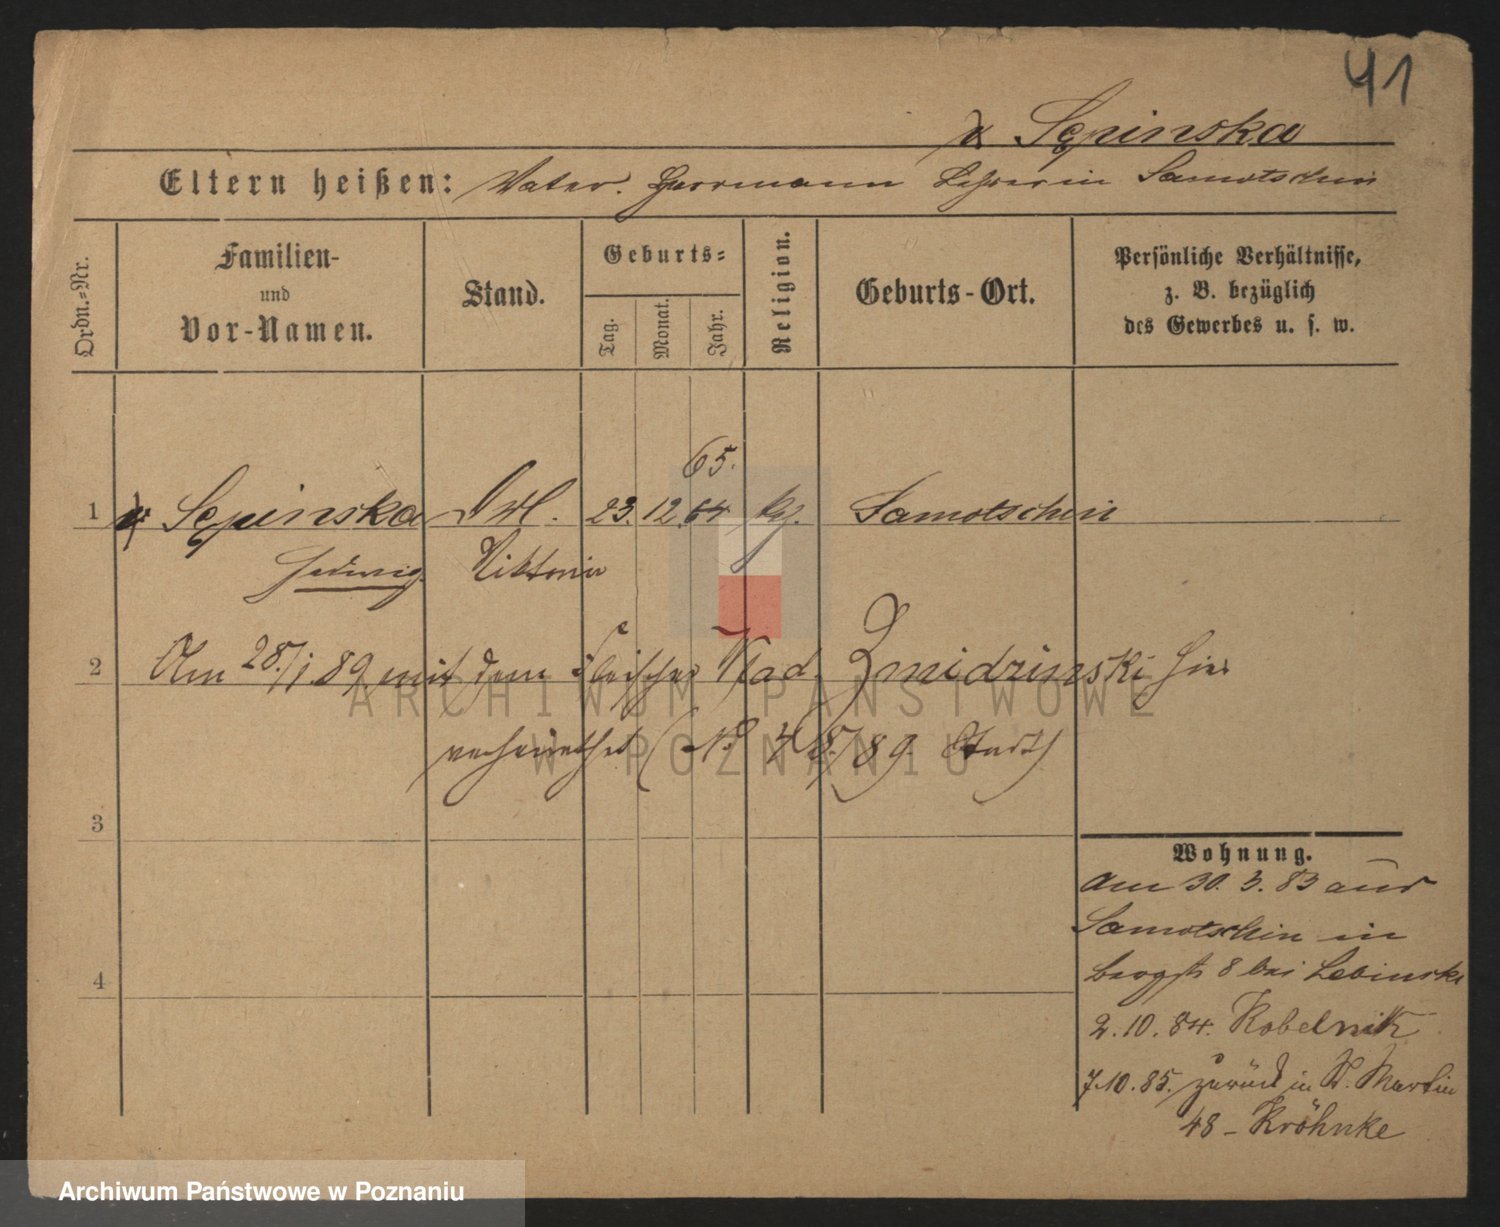 41
v Sępinska
Eltern heißen: Vater. Herrmann Lehrer in Samotschin
Ordn.-Nr.
Familien-
und
Vor-Namen.
Stand.
Geburts-
Tag.
Monat.
Jahr.
Religion.
Geburts-Ort.
Persönliche Verhältnisse,
z. B. bezüglich
des Gewerbes u. s. w.
65.
1 v Sępinska 23. 12. 64 Samotschin
Hedwig Viktoria
2 Am 28./1 89 mit dem Fleischer Wlad. Zmidzinski hier
verheirathet (No 48/89 Stadt)
3
4
Wohnung.
Am 30. 3. 83 aus
Samotschin in
Bergstr 8 bei Lebinska
2. 10. 84. Kobelnik
7.10.85. zurück in St. Martin
48 - Kröhnke
ARCHIWUM PAŃSTWOWE
W POZNANIU
Archiwum Państwowe w Poznaniu